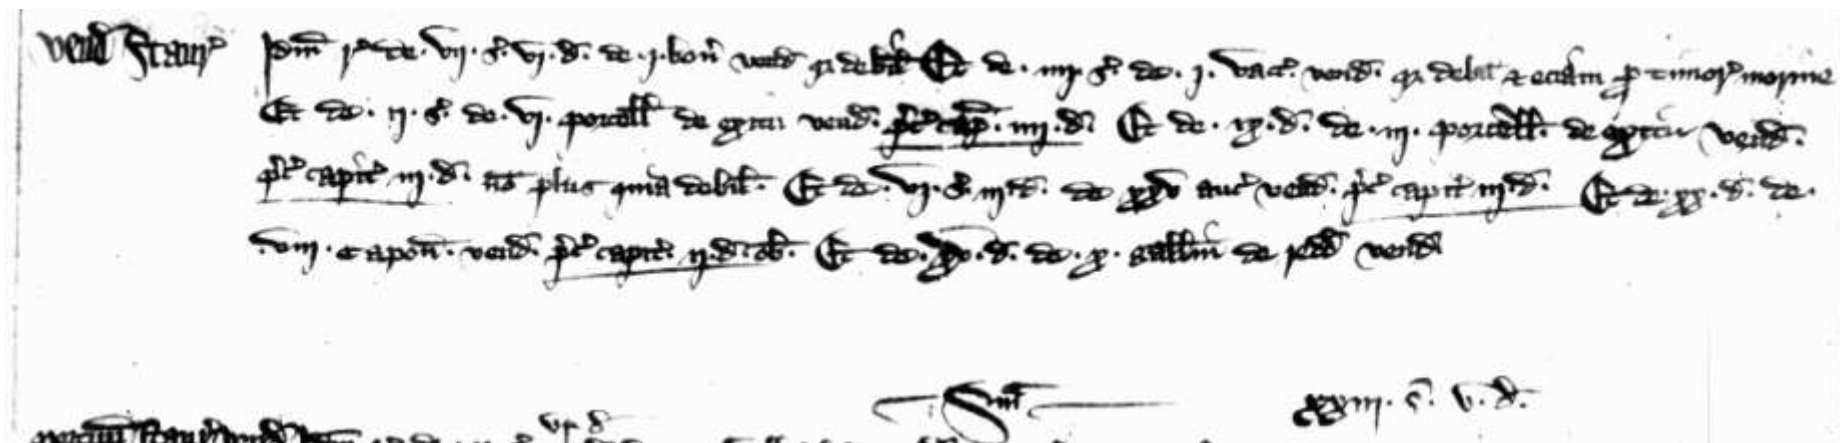 vend Staur Idm r de . vii . s . vi . d . de . i . bou vend q debil Et de . iiii s . de . i . vacc . vend . q debil & eciam p timor morine
Et de . ii . s . de . vi . porcell de exitu vend . pc cap . iiii . d . Et de . ix . d . de . iii . porcell . de exitu vend .
pc capit iii . d . no plus quia debil . Et de . vi . s . iii d . de xxv auc vend . pc capit iii d . Et de . xx . d . de .
viii . capon . vend . pc capit . ii . d . ob . Et de . xv . d . de . x . gallin de redd vend
Sm xxiii . s . v . d .